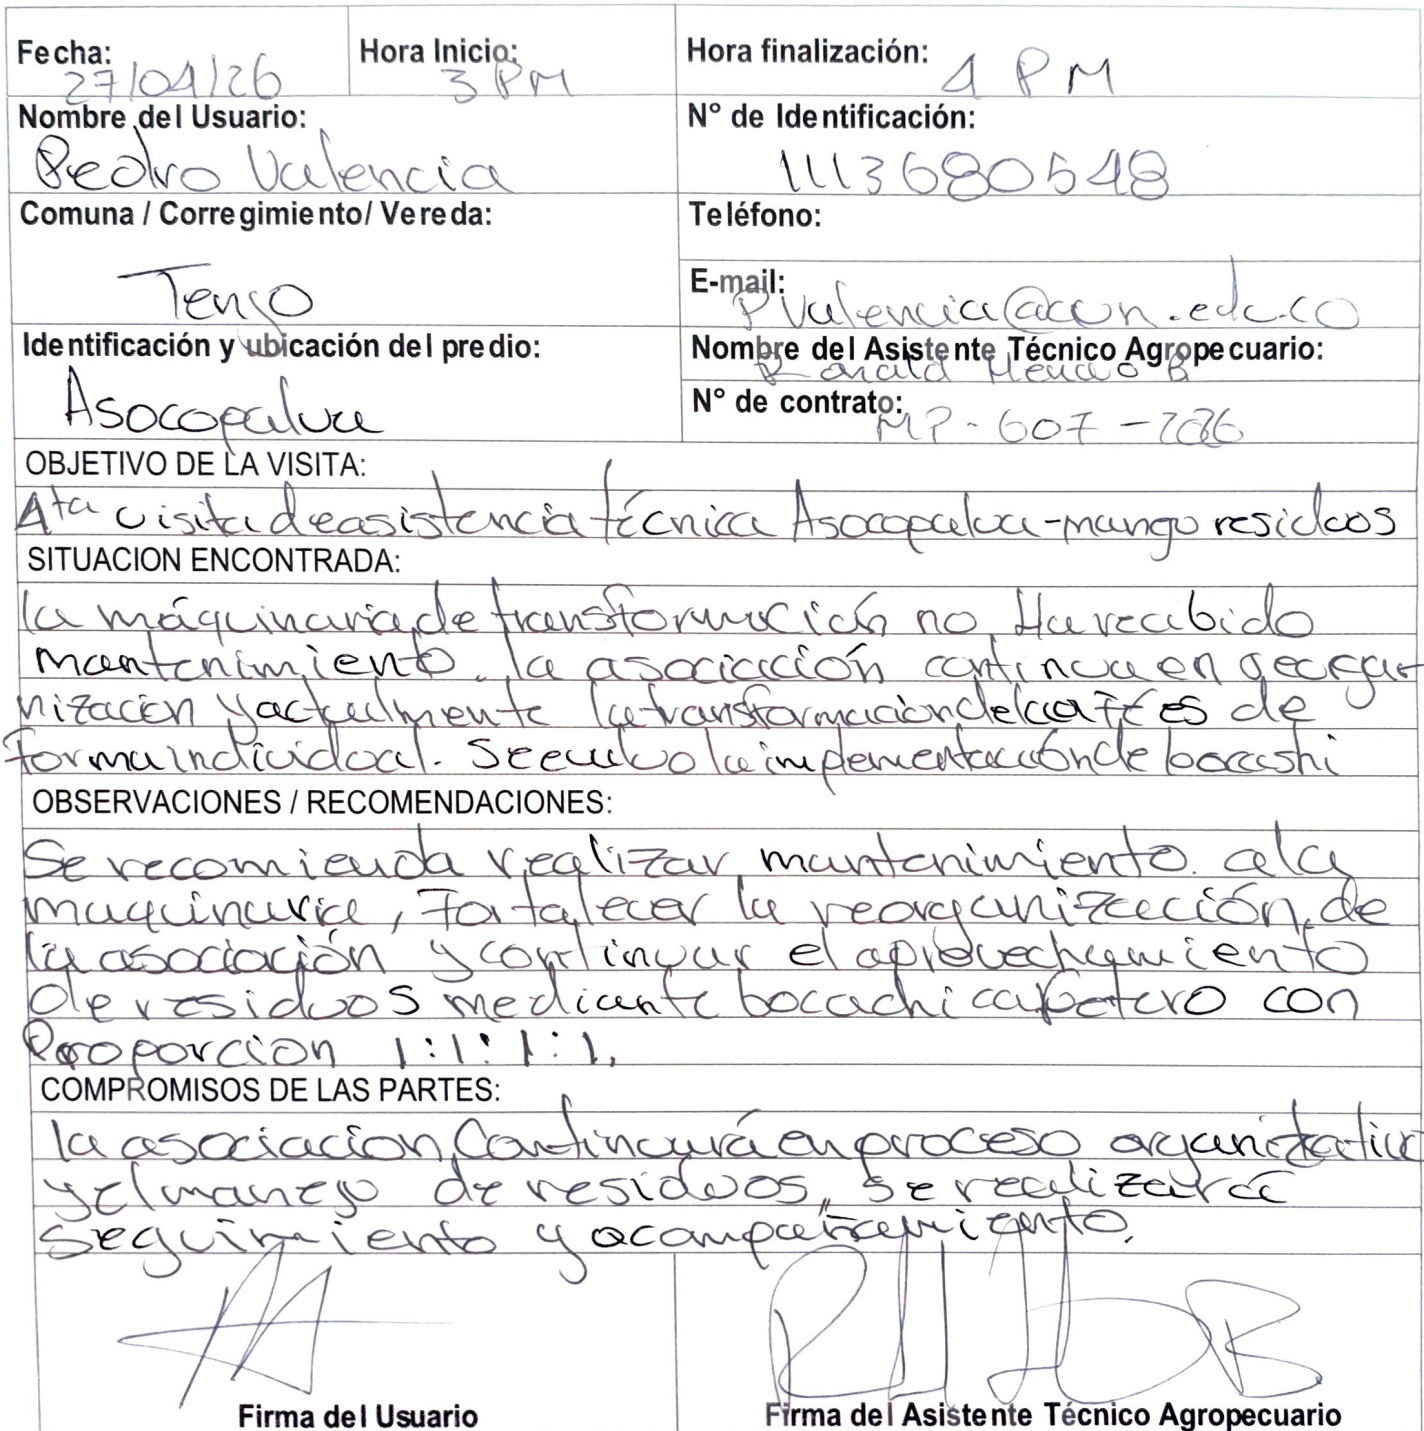 Fecha: 27/04/26 Hora Inicio: 3 PM Hora finalización: 4 PM
Nombre del Usuario: N° de Identificación:
Pedro Valencia 1113680548
Comuna / Corregimiento/ Vereda: Teléfono:
Tenjo
E-mail: pvalencia@cun.edc.co
Identificación y ubicación del predio: Nombre del Asistente Técnico Agropecuario:
Ronald Henao B
Asocopalva N° de contrato: MP-607-2026
OBJETIVO DE LA VISITA:
4ta visita de asistencia técnica Asocopalva-mango residuos
SITUACION ENCONTRADA:
la máquinaria de transformación no Ha recibido
mantenimiento. la asociación continua en reorga-
nización y actualmente la transformación del café es de
forma individual. Se evaluo la implementación de bocashi
OBSERVACIONES / RECOMENDACIONES:
Se recomienda realizar mantenimiento a la
maquinaria, Fortalecer la reorganización de
la asociación y continuar el aprovechamiento
de residuos mediante bocachi cafetero con
Proporcion 1:1:1:1.
COMPROMISOS DE LAS PARTES:
la asociacion Continuará en proceso organizativo
y el manejo de residuos, se realizará
seguimiento y acompañamiento.
Firma del Usuario Firma del Asistente Técnico Agropecuario